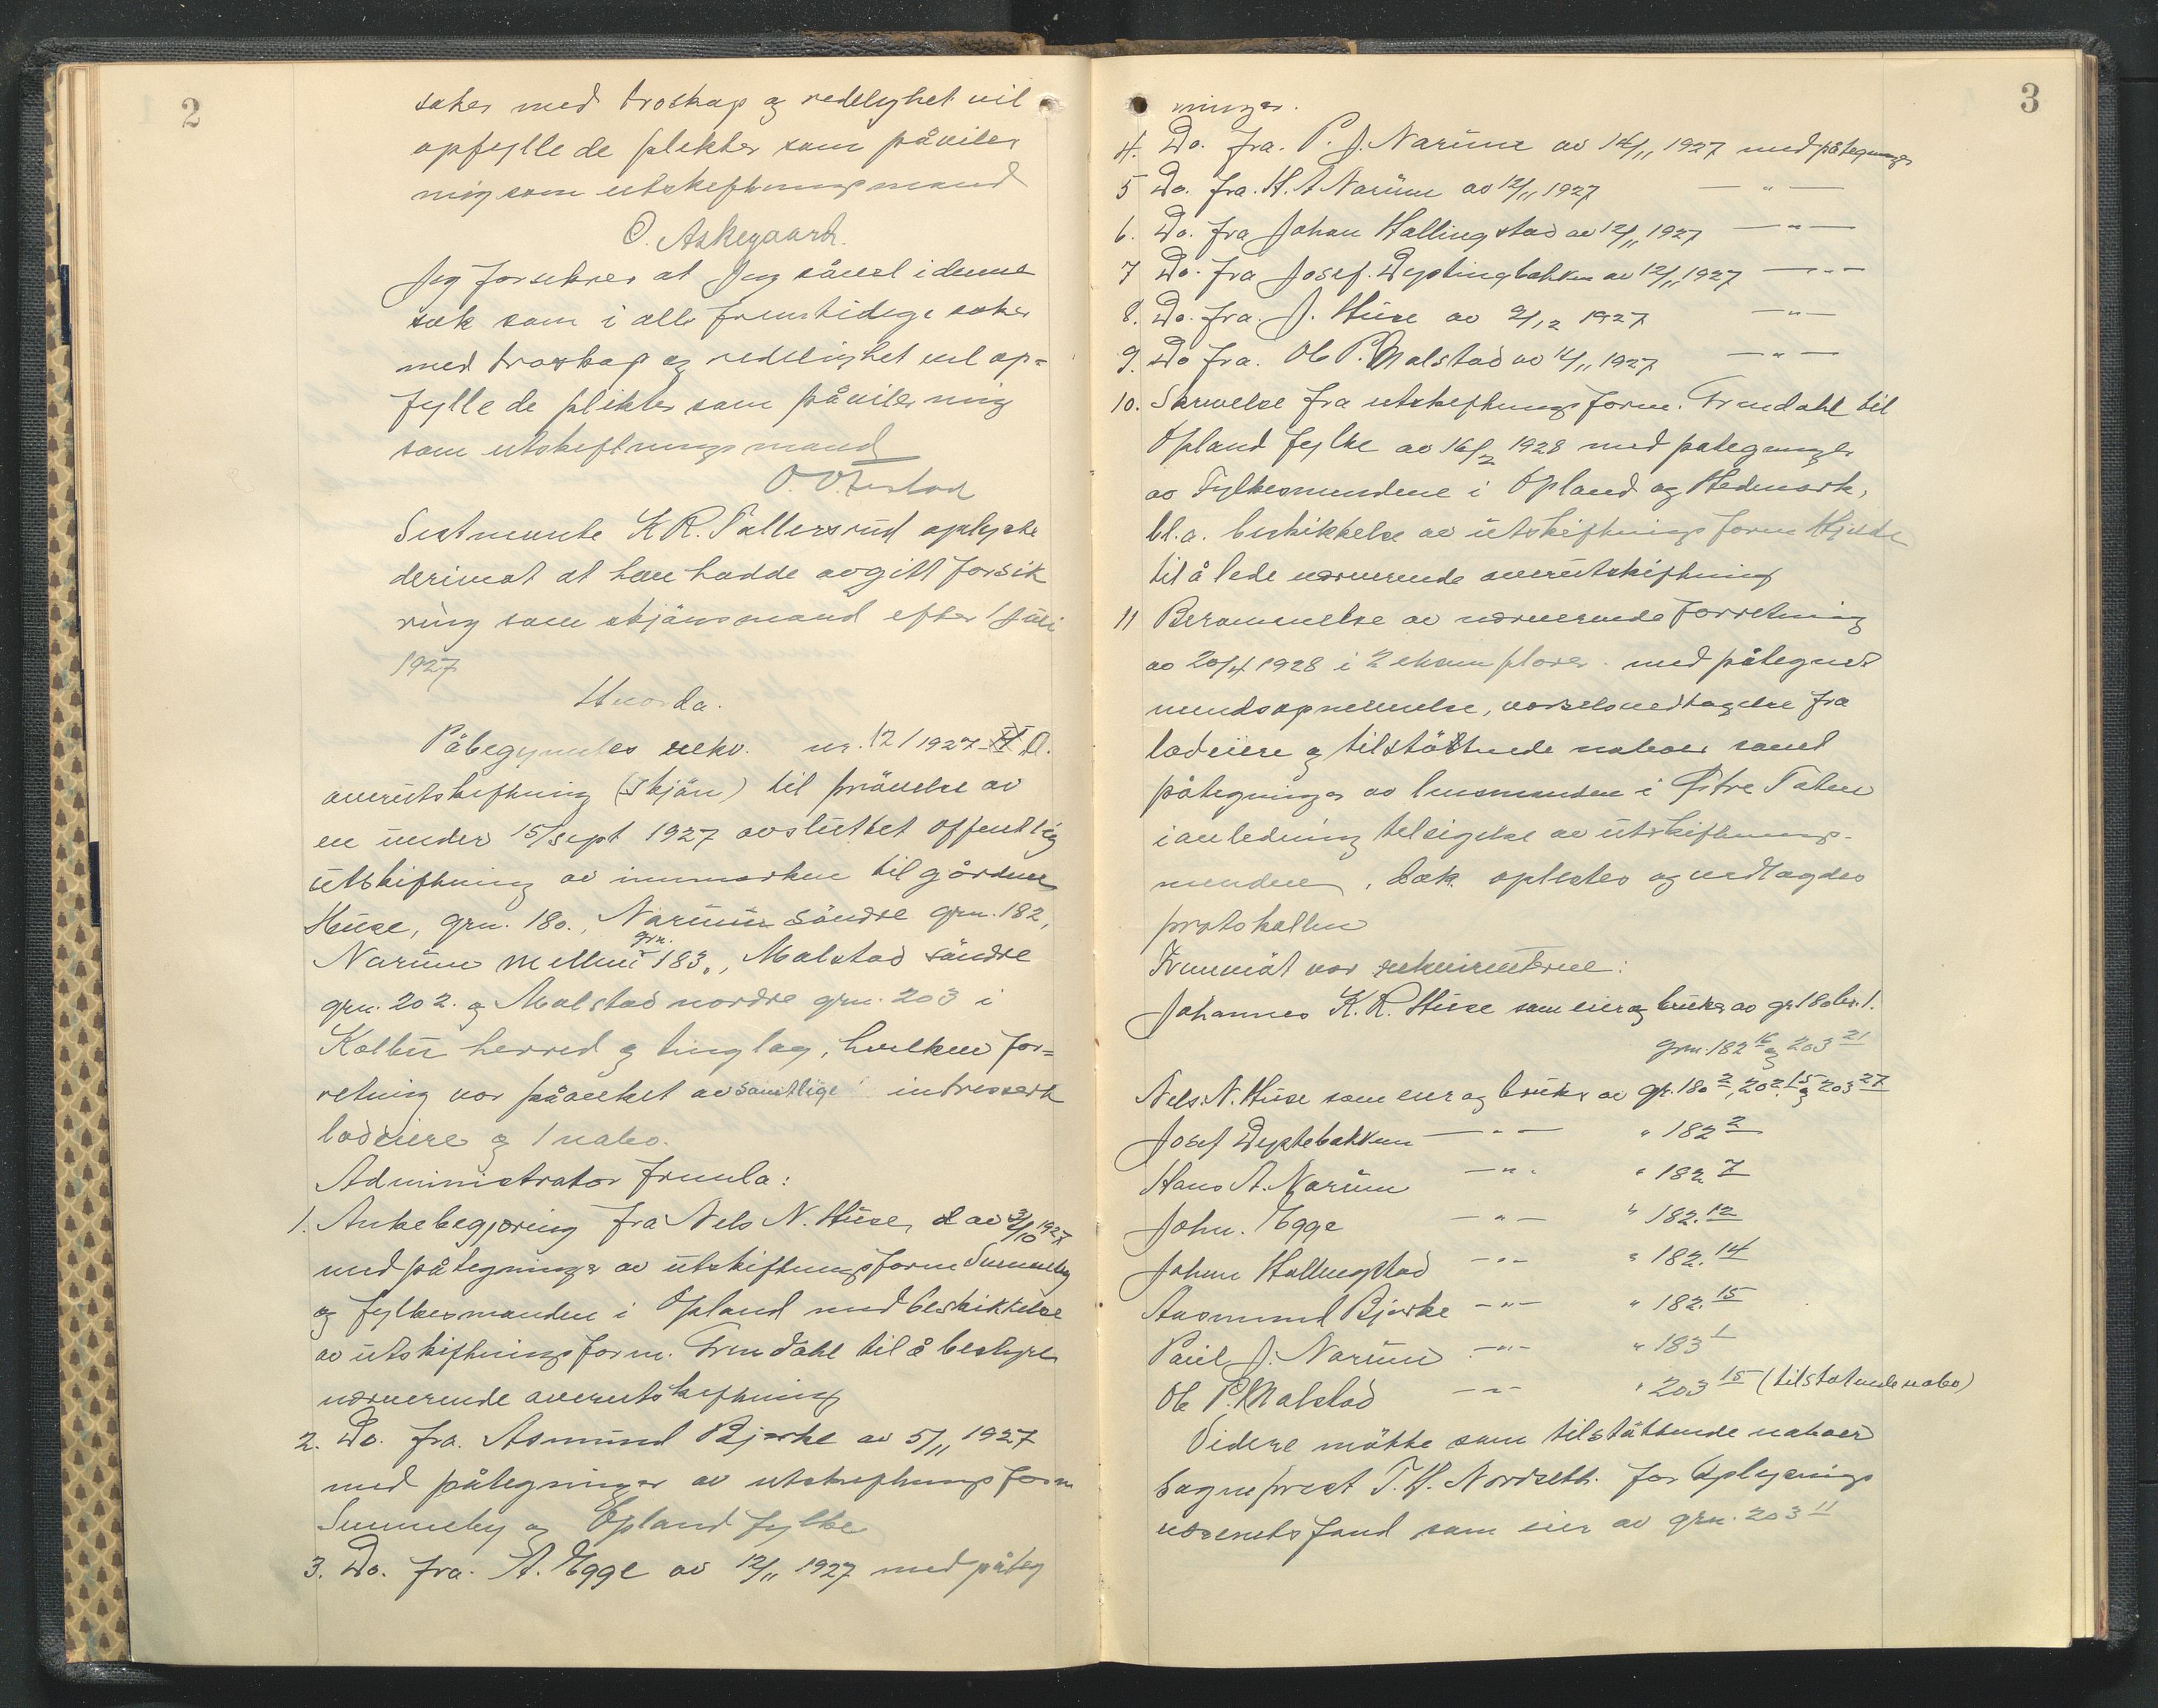 2
saker med troskap og redelighet vil
opfylle de plikter som påviler
mig som utskiftningsmand
O. Askegaard.
Jeg forsikrer at jeg såvel i denne
sak som i alle fremtidige saker
med troskap og redelighet vil op=
fylle de plikter som påviler mig
som utskiftningsmand
Sistnevnte K. R. Pallersrud oplyste
derimot at han hadde avgitt forsik
ring som skjønsmand efter 1 juli
1927
Hvorda.
Påbegyntes rekv. nr. 12/1927 A.
overutskiftning (skjön) til prövelse av
en under 15/sept 1927 avsluttet offentlig
utskiftning av innmarken til gårdene
Huse, grn. 180., Narum söndre grn. 182,
Narum mellem grn. 183., Malstad söndre
grn. 202. og Malstad nordre grn. 203 i
Kolbu herred og tinglag, hvilken for=
retning var påanket av samtlige intressert
lodeiere og 1 nabo.
Administrator fremla:
1. Ankebegjæring fra Nels N. Huse, av 3/10 1927
med påtegninger av utskiftningsform Sunneby
og fylkesmanden i Opland med beskikkelse
av utskiftningsform. Grendahl til å bestyre
nærverende overutskiftning
2. Do. fra. Asmund Bjerke av 5/11 1927
med påtegninger av utskiftningsform
Sunneby og Opland fylke
3. Do. fra. A. Egge av 12/11 1927 med påteg
3
ninger.
4. Do. fra. P. J. Narum av 12/11 1927 med påtegninger
5 Do. fra. H. A Narum av 12/11 1927 — " —
6. Do. fra Johan Hallingstad av 12/11 1927 — " —
7 Do. fra Josef. Dyplingbakken av 12/11 1927 — " —
8. Do. fra. J. Huse av 2/12 1927 — " —
9. Do fra. Ole P. Malstad av 12/11 1927 — " —
10. Skrivelse fra utskiftningsform. Grendahl til
Opland fylke av 16/2 1928 med påtegninger
av Fylkesmendene i Opland og Hedmark,
bl.a. beskikkelse av utskiftningsform Hjelde
til å lede nærverende overutskiftning
11 Berammelse av nærverende forretning
av 20/4 1928 i 2 eksemplarer. med påtegnet
mendsopnevnelse, varselsvedtagelse fra
lodeiere og tilstöttende naboer samt
påtegninger av lensmanden i Østre Toten
i anledning tilsigelse av utskiftnings-
mendene, Dok. oplestes og vedtagdes
protokollen
Fremmöt var rekvirentene:
Johannes K. R. Huse som eier og bruker av gr 180 br. 1.
grn. 182 16 og 203 21
Nels. N. Huse som eier og bruker av gr. 180 2, 202. 15 og 203 27
Josef Dyptebakken — " — " 182 2
Hans A. Narum — " — " 182 7
John. Egge — " — " 182. 12
Johan Hallingstad — " — " 182. 14
Aasmund Bjerke — " — " 182. 15
Paul J. Narum — " — " 183 1
Ole P. Malstad — " — " 203 15 (tilstötende nabo)
Videre mötte som tilstöttende naboer
Sogneprest T. H. Nordseth. for Oplysnings
væsenets fond som eier av grn. 203 11